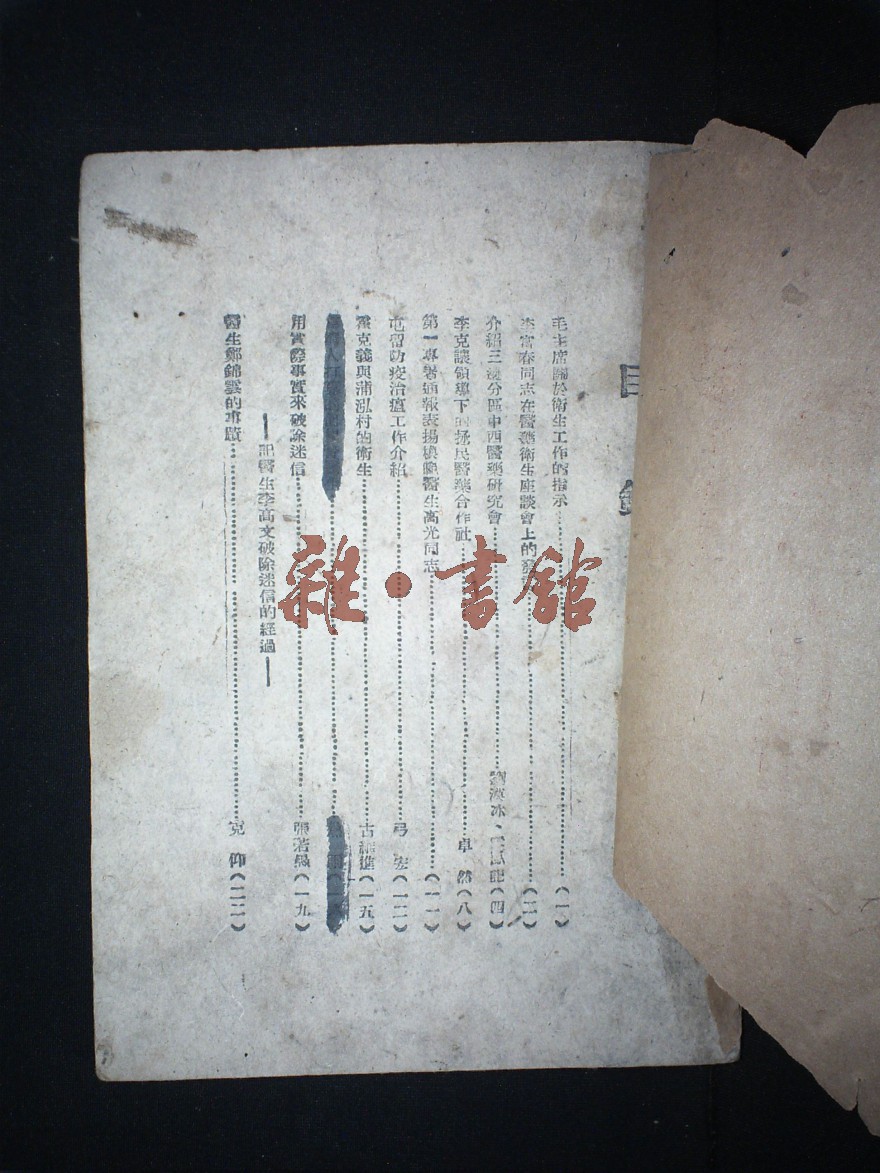 目錄
毛主席關於衛生工作的指示……(一)
李富春同志在醫藥衛生座談會上的發……(二)
介紹三邊分區中西醫藥研究會……劉澤冰、(四)
李克讓領導下的拯民醫藥合作社……卓然(八)
第一專署通報表揚模範醫生高光同志……(一一)
屯留防疫治瘟工作介紹……弓宏(一二)
霍克義與蒲泓村的衛生……古維進(一五)
用實際事實來破除迷信……張若愚(一九)
——記醫生李高文破除迷信的經過——
醫生鄭錦雲的事蹟……克仰(二二)
雜·書館